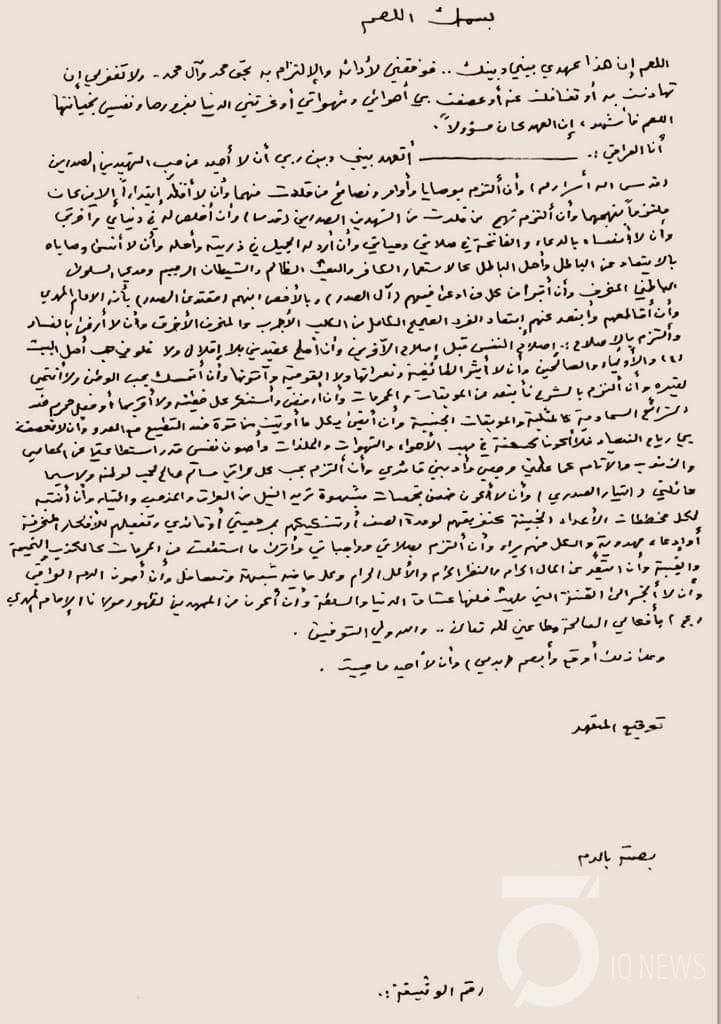 بسمك اللهم
اللهم إن هذا عهدي بيني وبينك .. فوفقني لأدائه والإلتزام به بحق محمد وآل محمد - ولا تغفر لي إن
تهاونت به أو تغافلت عنه أو عصفت بي أهوائي وشهواتي أو غرتني الدنيا بغرورها ونفسي بخيانتها
اللهم فأشهد، إن العهد كان مسؤولاً.
أنا العراقي :. ــــــــــــــــ أتعهد بيني وبين ربي أن لا أحيد عن حب الشهيدين الصدرين
(قدست أسرارهم) وأن ألتزم بوصايا وأوامر ونصائح من قلدت منهما وأن لا أقلد إبتداءاً إلا من كان
ملتزماً منهجهما وأن ألتزم نهج من قلدت من الشهيدين الصدرين (قدسا) وأن أخلص له في دنياي وآخرتي
وأن لا أنساه بالدعاء والفاتحة في صلاتي وحياتي وأن أرد له الجميل في ذريته وأهله وأن لا أنسى وصاياه
بالابتعاد عن الباطل وأهل الباطل كالاستعمار الكافر والبعث الظالم والشيطان الرجيم ومدعي السلوك
الباطني المنحرف وأن أتبرأ من كل من ادعى فيهم (آل الصدر) وبالأخص ابنهم (مقتدى الصدر) بأنه الإمام المهدي
وأن أقاطعهم وأبتعد عنهم إبتعاد الفرد الصحيح الكامل من الكلب الأجرب والمنحرف الأخرق وأن لا أرضى بالفساد
وألتزم بالإصلاح :. إصلاح النفس قبل إصلاح الآخرين وأن أصلح عقيدتي بلا إقلال ولا غلو في حب أهل البيت
(ع) والأولياء والصالحين وأن لا أثير الطائفية ونعراتها ولا القومية وأتونها وأن أتمسك بحب الوطن ولا أنتمي
لغيره وأن ألتزم بالشرع فأبتعد عن الموبقات والمحرمات وأن أرفض وأستنكر كل خطيئة ولا أقربها أو فعل محرم ضد
الشرائع السماوية كالمثلية والموبقات الجنسية وأن أتقي بكل ما أوتيت من قوة ضد التطبيع مع العدو وأن لا تعصف
بي رياح الفساد فلا أكون كريشة في مهب الأهواء والشهوات والملذات وأصون نفسي قدر استطاعتي عن المعاصي
والذنوب والآثام كما علمني مرجعي وأدبني قائدي وأن ألتزم بحب كل عراقي مسالم صالح محب لوطنه ولا سيما
عائلتي (التيار الصدري) وأن لا أكون ضمن تجمعات مشبوهة تريد النيل من العراق والمذهب والتيار وأن أنتبه
لكل مخططات الأعداء الخبيثة كتفريقهم لوحدة الصف أو تشكيكهم بمرجعيتي أو قائدي وتفعيلهم للأفكار المنحرفة
أو إدعاء مهدوية والكل منهم براء وأن ألتزم بصلاتي وواجباتي وأترك ما استطعت من المحرمات كالكذب والنميمة
والغيبة وأن أبتعد عن المال الحرام والنظر الحرام والأكل الحرام وكل ما فيه شبهة وتعصب وأن أصون الدم العراقي
وأن لا أنجر الى الفتنة التي يلهث خلفها عشاق الدنيا والسلطة وأن أكون من الممهدين لظهور مولانا الإمام المهدي
(عج) بأفعالي الصالحة وطاعتي لله تعالى .. والله ولي التوفيق .
وعلى ذلك أوقع وأبصم (بدمي) وأن لا أحيد ما حييت .
توقيع المتعهد
بصمة بالدم
رقم الوثيقة :.
IQ NEWS